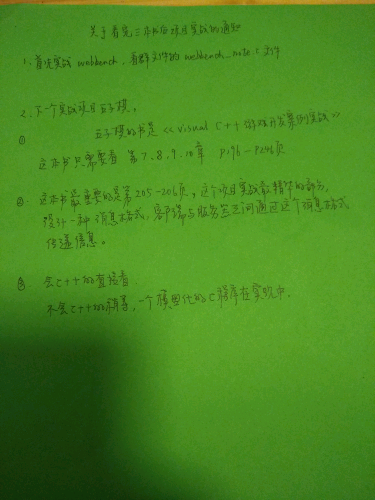 关于看完三本书后项目实战的通知
1. 首先实战 webbench, 看群文件的 webbench_note.c 文件
2. 下一个实战项目五子棋。
① 五子棋的书是《visual C++ 游戏开发案例实战》
这本书只需要看 第7、8、9、10章 P196-P246页
② 这本书最重要的是第205-206页, 这个项目实战最精华的部分,
设计一种消息格式, 客户端与服务区之间通过这个消息格式
传递信息。
③ 会C++的直接看
不会C++的稍等, 一个模因化的C程序在实现中.